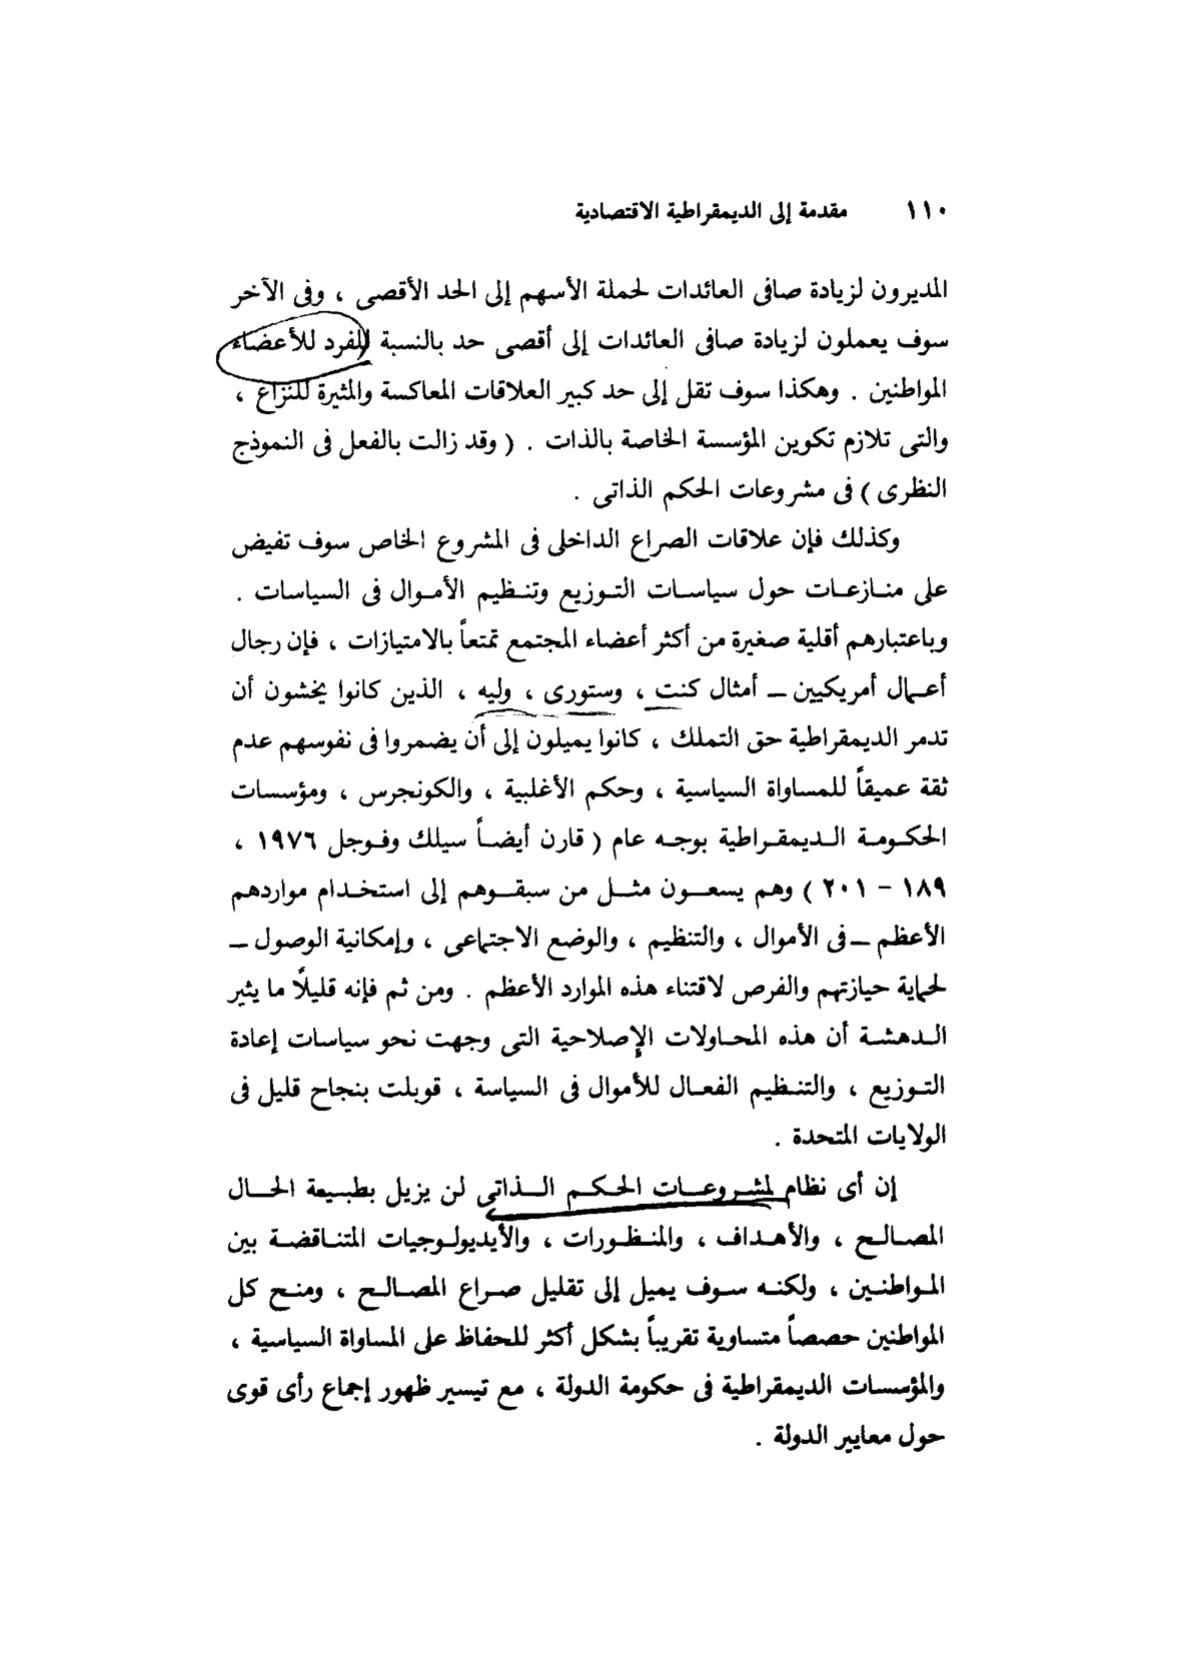 ١١٠ مقدمة إلى الديمقراطية الاقتصادية
المديرون لزيادة صافى العائدات لحملة الأسهم إلى الحد الأقصى ، وفى الآخر
سوف يعملون لزيادة صافى العائدات إلى أقصى حد بالنسبة للفرد للأعضاء
المواطنين . وهكذا سوف تقل إلى حد كبير العلاقات المعاكسة والمثيرة للنزاع ،
والتى تلازم تكوين المؤسسة الخاصة بالذات . ( وقد زالت بالفعل فى النموذج
النظرى ) فى مشروعات الحكم الذاتى .
وكذلك فإن علاقات الصراع الداخلى فى المشروع الخاص سوف تفيض
على منازعات حول سياسات التوزيع وتنظيم الأموال فى السياسات .
وباعتبارهم أقلية صغيرة من أكثر أعضاء المجتمع تمتعاً بالامتيازات ، فإن رجال
أعمال أمريكيين ــ أمثال كنت ، وستورى ، وليه ، الذين كانوا يخشون أن
تدمر الديمقراطية حق التملك ، كانوا يميلون إلى أن يضمروا فى نفوسهم عدم
ثقة عميقاً للمساواة السياسية ، وحكم الأغلبية ، والكونجرس ، ومؤسسات
الحكومة الديمقراطية بوجه عام ( قارن أيضاً سيلك وفوجل ١٩٧٦ ،
١٨٩ – ٢٠١ ) وهم يسعون مثل من سبقوهم إلى استخدام مواردهم
الأعظم ــ فى الأموال ، والتنظيم ، والوضع الاجتماعى ، وإمكانية الوصول ــ
لحماية حيازتهم والفرص لاقتناء هذه الموارد الأعظم . ومن ثم فإنه قليلًا ما يثير
الدهشة أن هذه المحاولات الإصلاحية التى وجهت نحو سياسات إعادة
التوزيع ، والتنظيم الفعال للأموال فى السياسة ، قوبلت بنجاح قليل فى
الولايات المتحدة .
إن أى نظام لمشروعات الحكم الذاتى لن يزيل بطبيعة الحال
المصالح ، والأهداف ، والمنظورات ، والأيديولوجيات المتناقضة بين
المواطنين ، ولكنه سوف يميل إلى تقليل صراع المصالح ، ومنح كل
المواطنين حصصاً متساوية تقريباً بشكل أكثر للحفاظ على المساواة السياسية ،
والمؤسسات الديمقراطية فى حكومة الدولة ، مع تيسير ظهور إجماع رأى قوى
حول معايير الدولة .